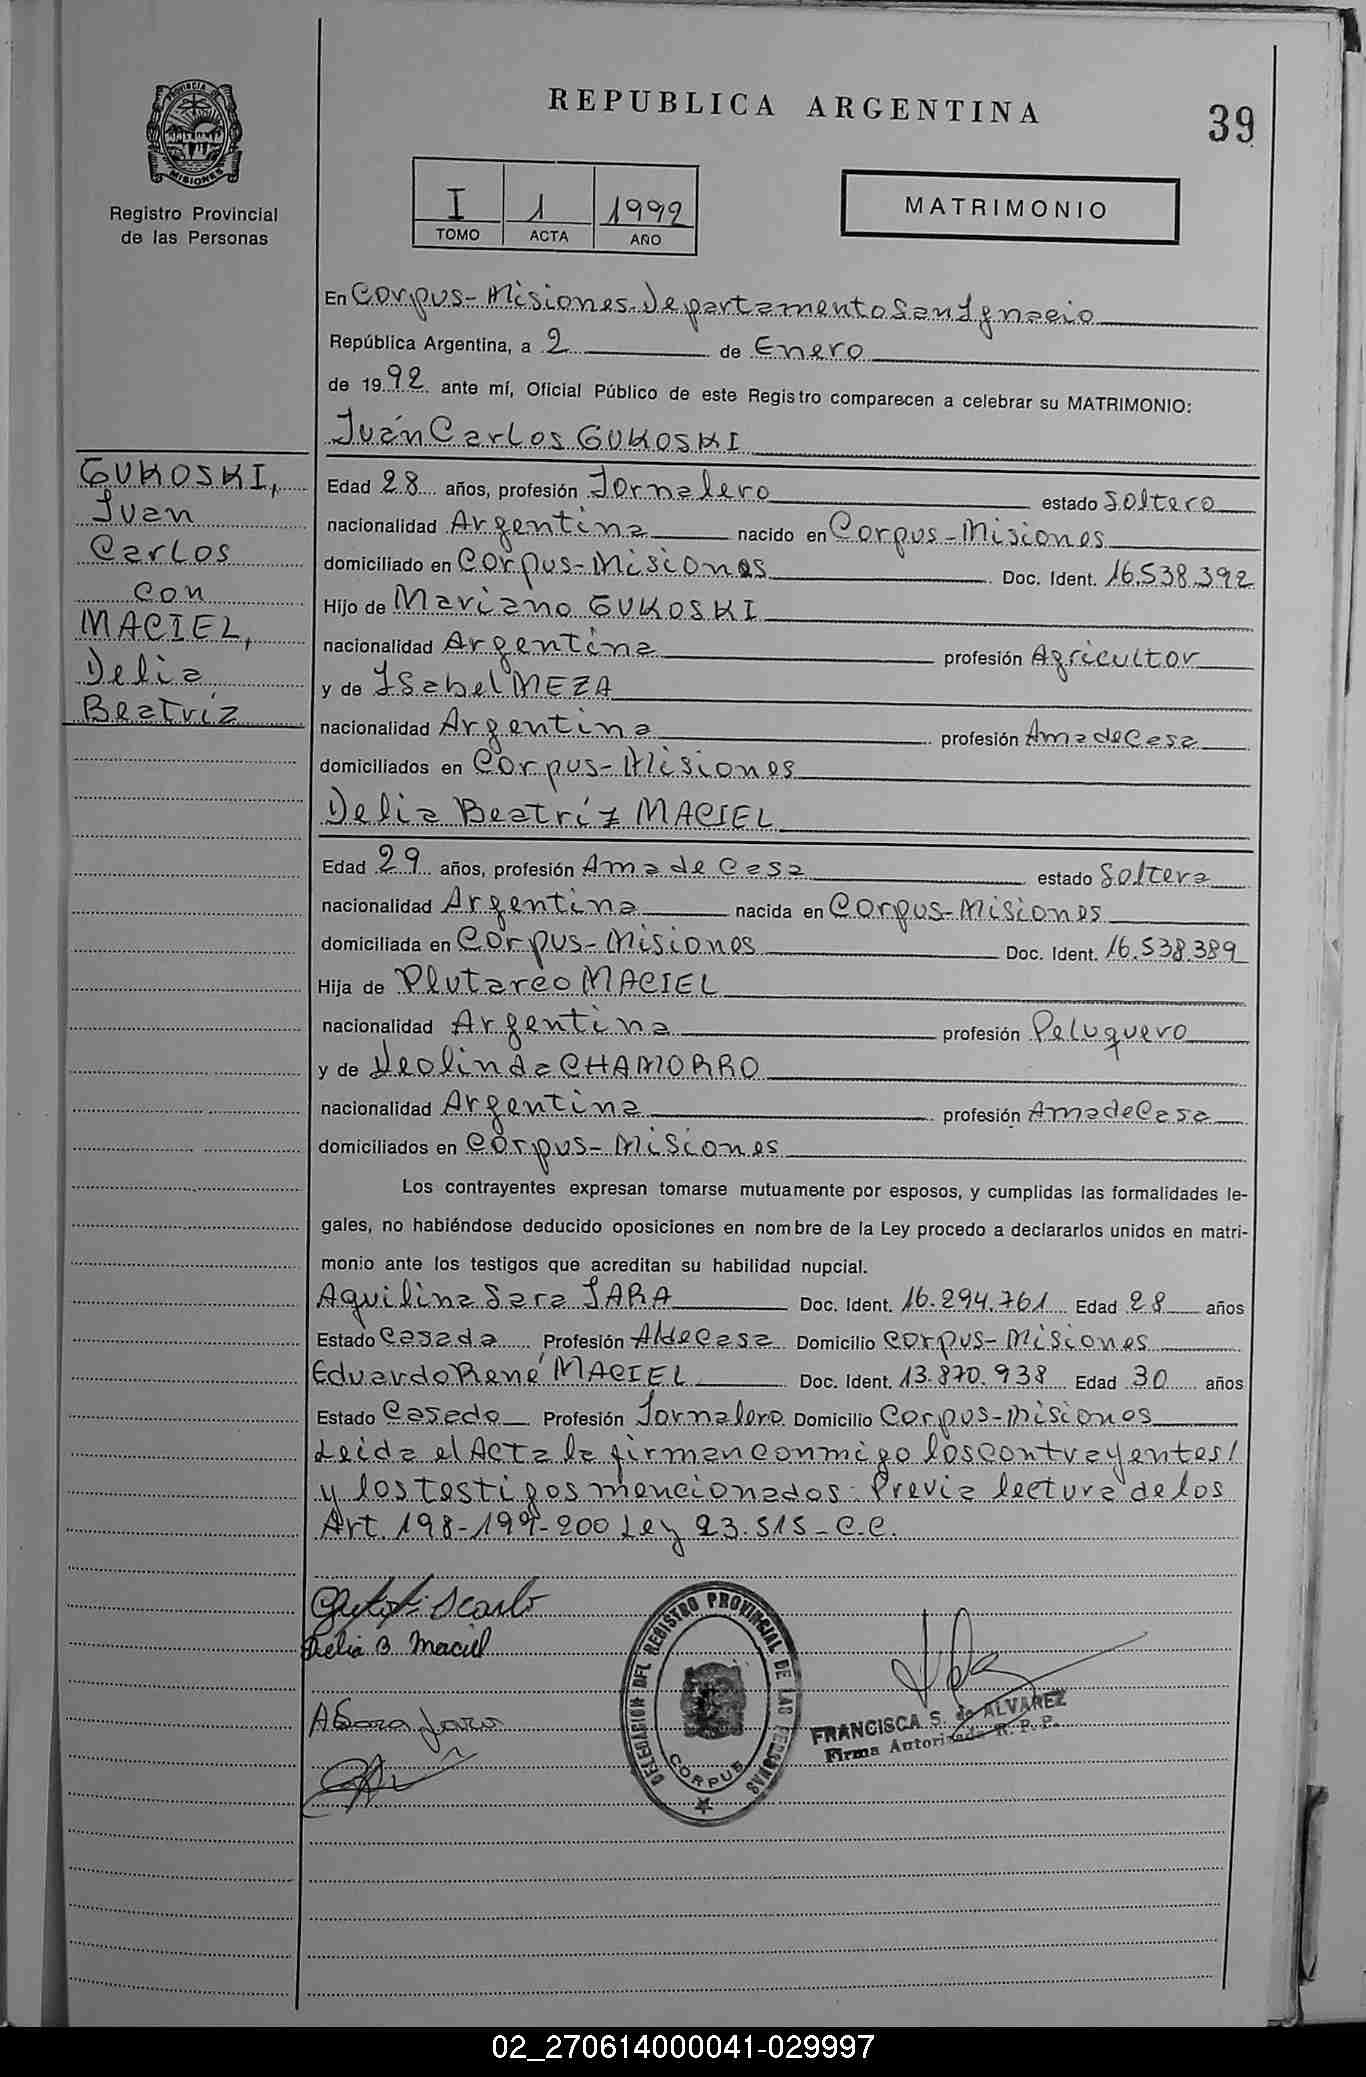 REPUBLICA ARGENTINA
39
PROVINCIA DE MISIONES
Registro Provincial
de las Personas
I 1 1992
TOMO ACTA AÑO
MATRIMONIO
En Corpus-Misiones-Departamento San Ignacio
República Argentina, a 2 de Enero
de 1992 ante mí, Oficial Público de este Registro comparecen a celebrar su MATRIMONIO:
Juán Carlos GUKOSKI
GUKOSKI,
Juan
Carlos
con
MACIEL,
Delia
Beatríz
Edad 28 años, profesión Jornalero estado Soltero
nacionalidad Argentina nacido en Corpus-Misiones
domiciliado en Corpus-Misiones Doc. Ident. 16.538.392
Hijo de Mariano GUKOSKI
nacionalidad Argentina profesión Agricultor
y de Isabel MEZA
nacionalidad Argentina profesión Ama de Casa
domiciliados en Corpus-Misiones
Delia Beatríz MACIEL
Edad 29 años, profesión Ama de Casa estado Soltera
nacionalidad Argentina nacida en Corpus-Misiones
domiciliada en Corpus-Misiones Doc. Ident. 16.538.389
Hija de Plutarco MACIEL
nacionalidad Argentina profesión Peluquero
y de Deolinda CHAMORRO
nacionalidad Argentina profesión Ama de Casa
domiciliados en Corpus-Misiones
Los contrayentes expresan tomarse mutuamente por esposos, y cumplidas las formalidades le-
gales, no habiéndose deducido oposiciones en nombre de la Ley procedo a declararlos unidos en matri-
monio ante los testigos que acreditan su habilidad nupcial.
Aquilina Sara JARA Doc. Ident. 16.294.761 Edad 28 años
Estado Casada Profesión A/de Casa Domicilio Corpus-Misiones
Eduardo René MACIEL Doc. Ident. 13.870.938 Edad 30 años
Estado Casado Profesión Jornalero Domicilio Corpus-Misiones
Leida el Acta la firman conmigo los contrayentes/
y los testigos mencionados. Previa lectura de los
Art. 198-199-200 Ley 23.515-C.C.
Delia B. Maciel
A Sara Jara
DELEGACION DEL REGISTRO PROVINCIAL DE LAS PERSONAS
CORPUS
FRANCISCA S. de ALVAREZ
Firma Autorizada R. P. P.
02_270614000041-029997